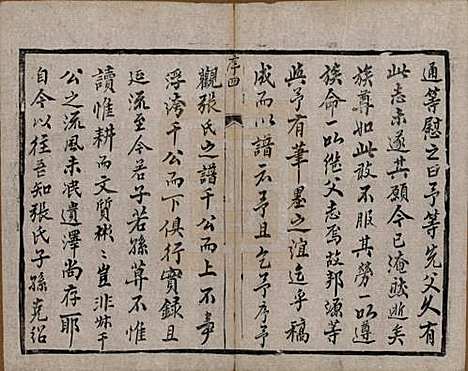 通等慰之曰予等先父久有
此志未遂其願今已淹歿逝矣
族尊如此敢不服其勞一以遵
族命一以继父志焉故邦源等
與予有筆墨之誼迄乎稿
成而以譜示予且乞予序予
序四
觀張氏之譜千公而上不事
浮誇千公而下俱行實録且
延流至今若子若孫莫不惟
讀惟耕而文質彬々豈非妹千
公之流風未泯遺澤尚存耶
自今以往吾知張氏子孫克紹